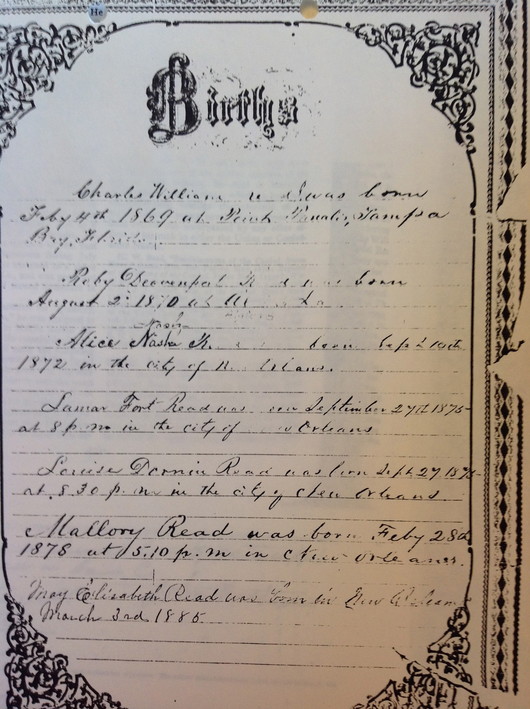 He
Births
Charles William was born
Feby 4th 1869 at Tampa
Bay, Florida
Ruby was born
August 2 18 0 at
Nash
Alice K. born Sept
1872 in the city of Orleans.
Lamar Fort Read was September 27th 1875
at 8 p.m in the city of Orleans
Louise Read was born Sept. 27 1875
at 8.30 p. m in the city of New Orleans.
Mallory Read was born Feby 28th
1878 at 5.10 p.m in New Orleans.
May Elizabeth Read was born in New Orleans
March 3rd 1885.